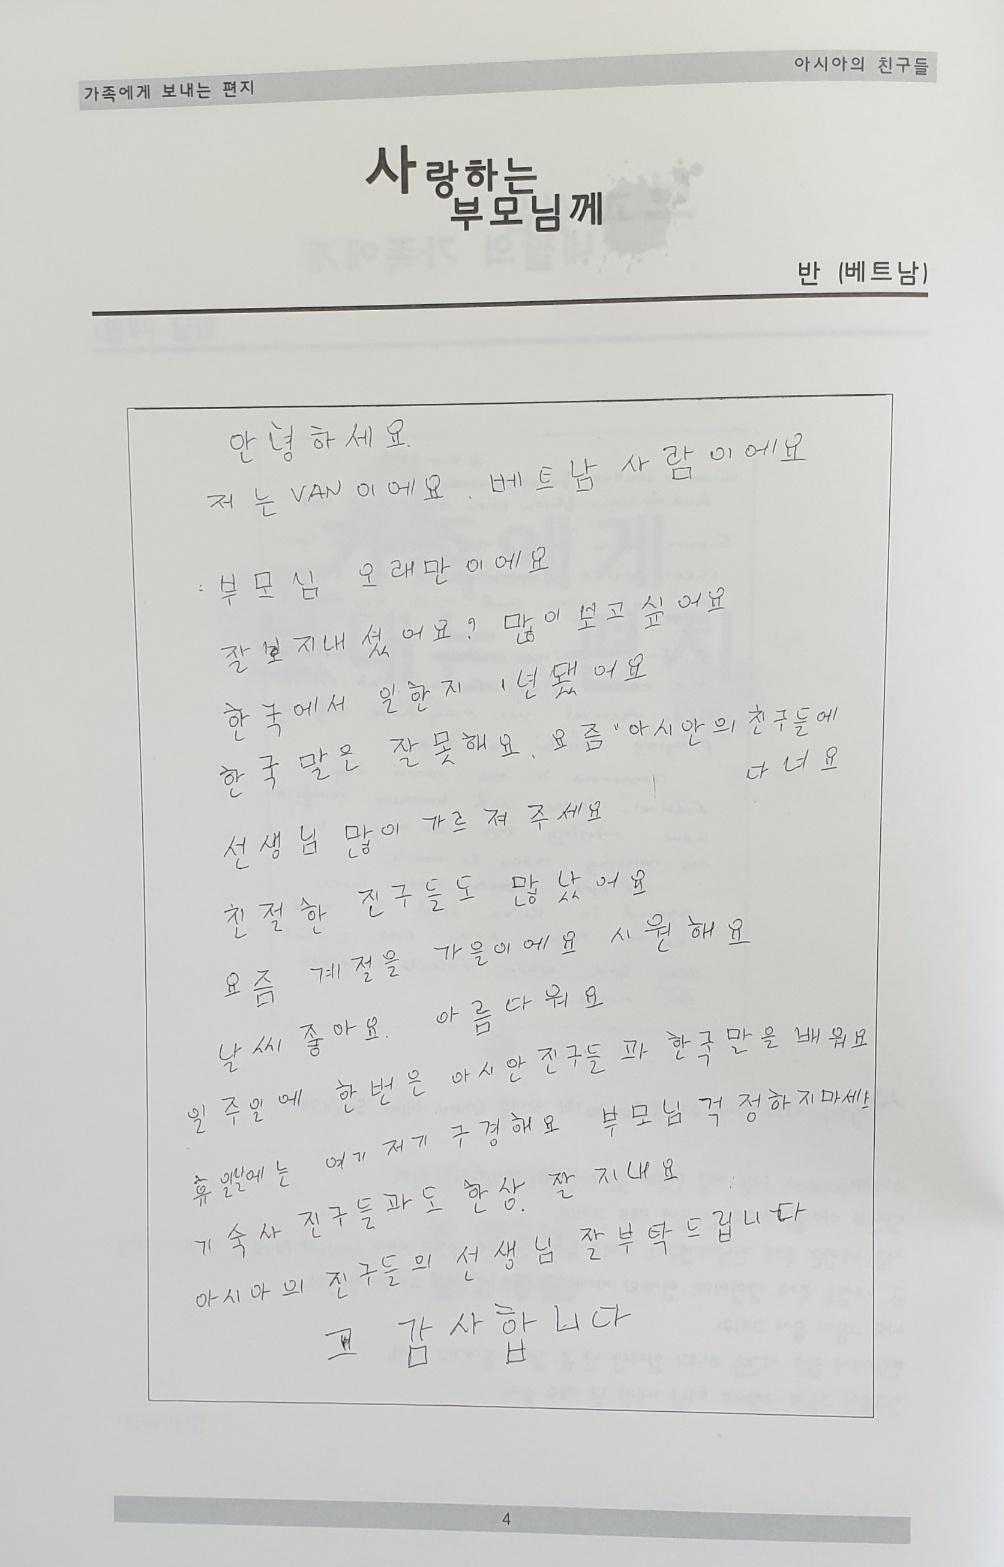 가족에게 보내는 편지
아시아의 친구들
사랑하는
부모님께
반 (베트남)
안녕하세요.
저는 VAN이에요. 베트남 사람이에요
: 부모님 오래만이에요
잘 지내셨어요? 많이 보고 싶어요
한국에서 일한지 1년됐어요
한국말은 잘못해요. 요즘 "아시안의 친구들에
다녀요
선생님 많이 가르져 주세요
친절한 진구들도 많났어요
요즘 계절을 가을이에요 시원해요
날씨 좋아요. 아름다워요
일주일에 한번은 아시안진구들과 한국말을 배워요
휴일에는 여기 저기 구경해요 부모님 걱정하지마세요
기숙사 진구들과도 한상. 잘 지내요
아시아의 진구들의 선생님 잘부탁드립니다
고 감사합니다
4